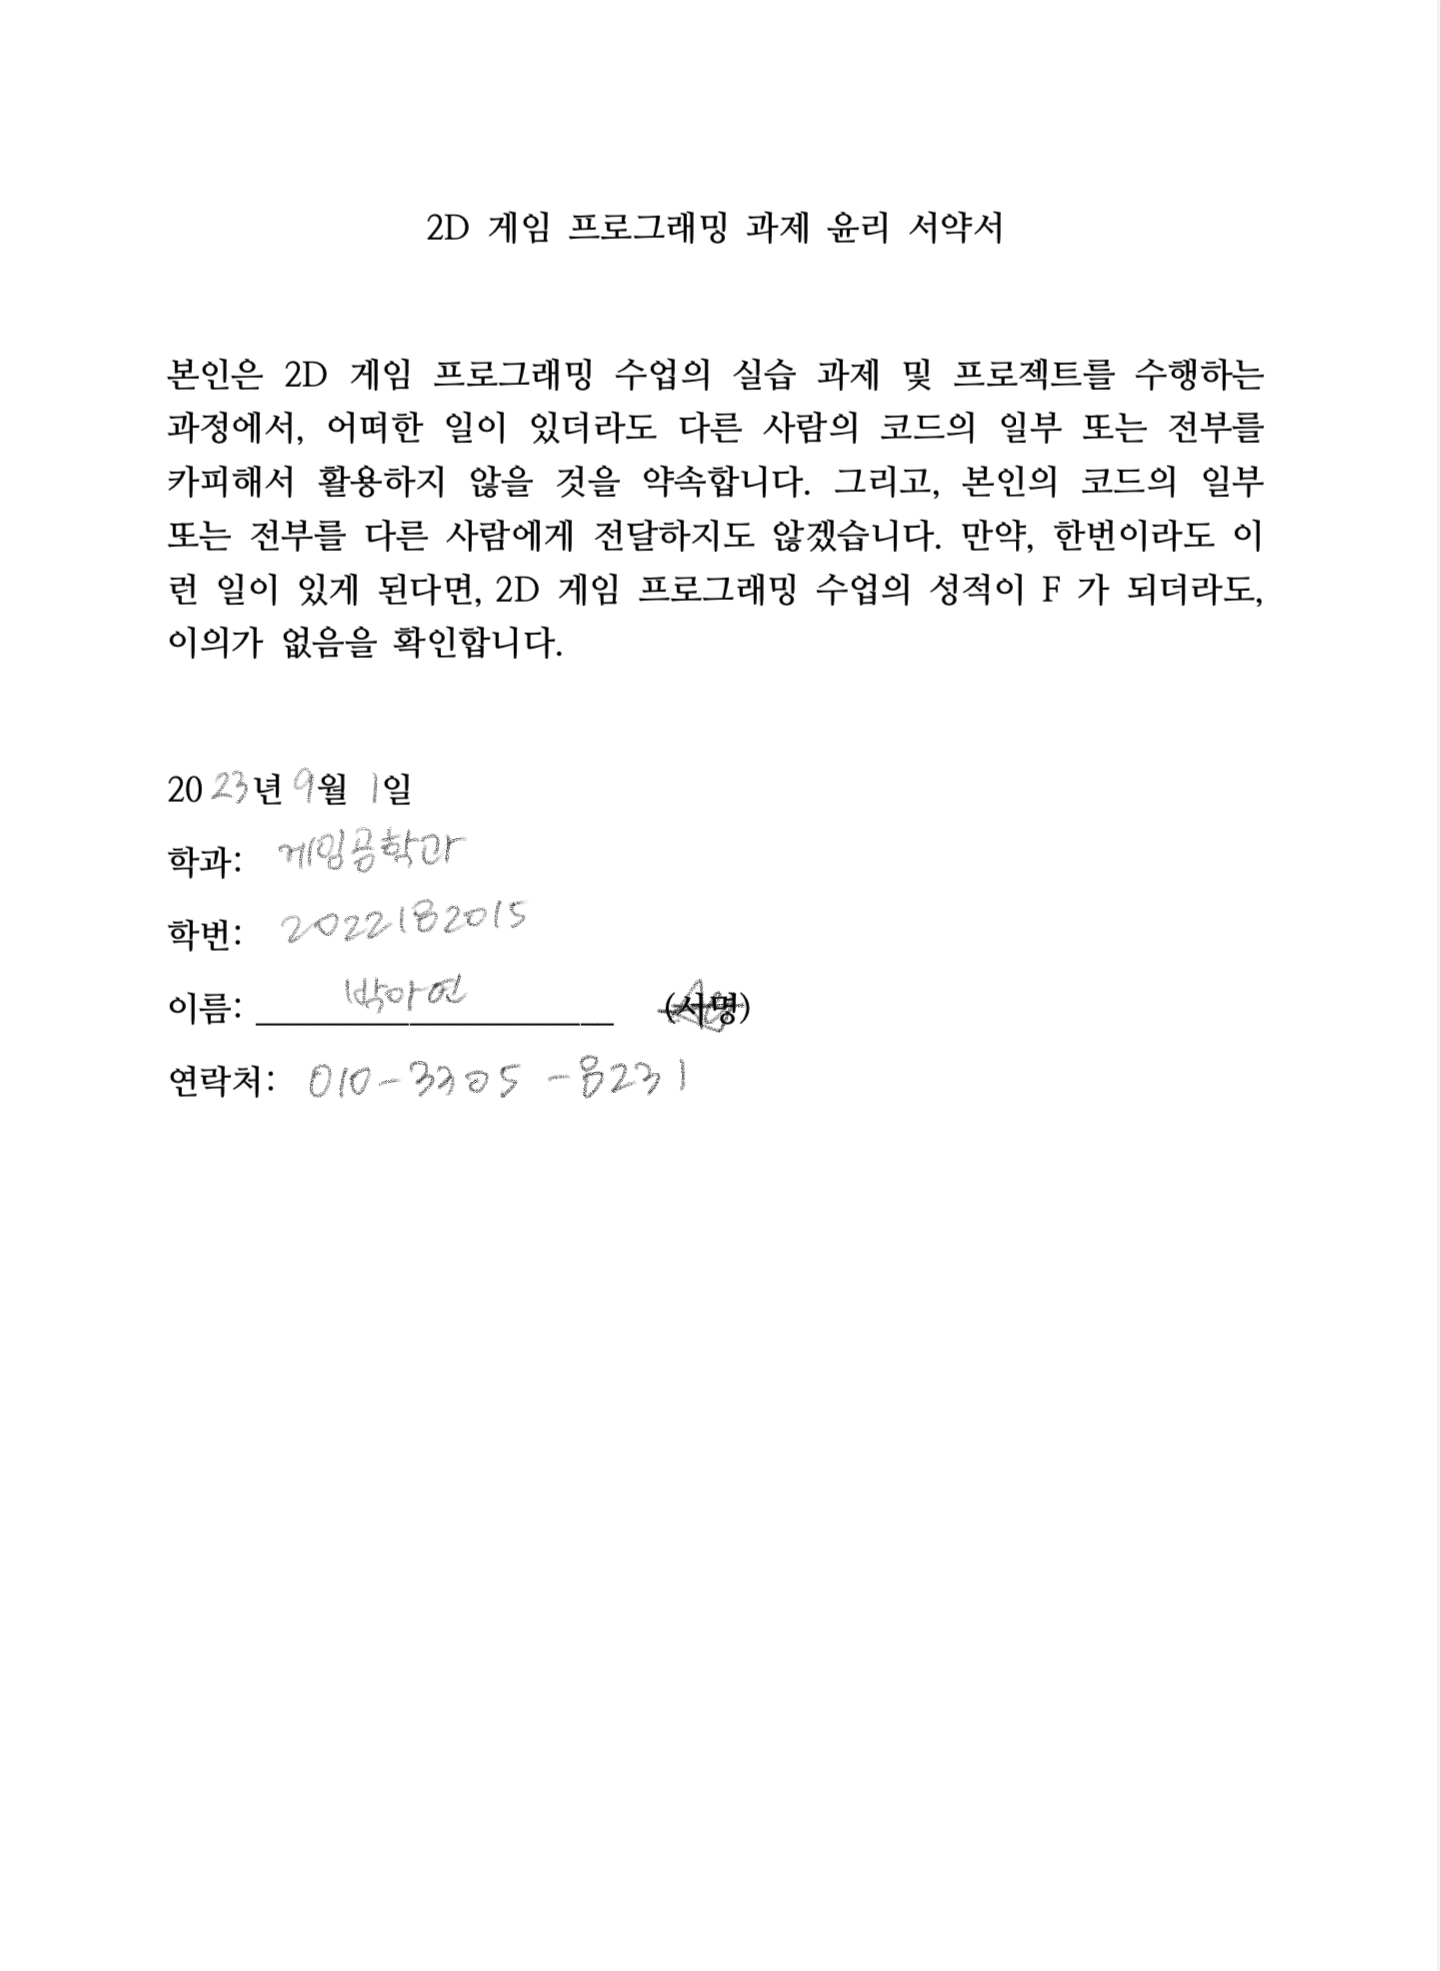 2D 게임 프로그래밍 과제 윤리 서약서
본인은 2D 게임 프로그래밍 수업의 실습 과제 및 프로젝트를 수행하는
과정에서, 어떠한 일이 있더라도 다른 사람의 코드의 일부 또는 전부를
카피해서 활용하지 않을 것을 약속합니다. 그리고, 본인의 코드의 일부
또는 전부를 다른 사람에게 전달하지도 않겠습니다. 만약, 한번이라도 이
런 일이 있게 된다면, 2D 게임 프로그래밍 수업의 성적이 F 가 되더라도,
이의가 없음을 확인합니다.
2023년 9월 1일
학과: 게임공학과
학번: 2022182015
이름: 박아연 (서명)
연락처: 010-3305-8231